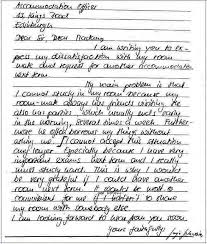 Accommodation Officer
55 Kings Road
Edinburgh
Dear Sir, Dear Madam,
I am writing you to ex-
press my dissatisfaction with my room
mate and request for another accommodation
next term.
My main problem is that
I cannot study in my room because my
room-mate always has friends visiting. He
also has parties which usually ends
in the morning, several times a week. Further
more he often borrows my things without
asking me. I cannot accept this situation
any longer. Especially because I have very
important exams next term and I really
must study hard. This is why I would
be very grateful if I could have another
room next term. It would be most
convenient for me if I hadn't to share
my room with somebody else.
I am looking forward to hear from you soon.
Yours faithfully,